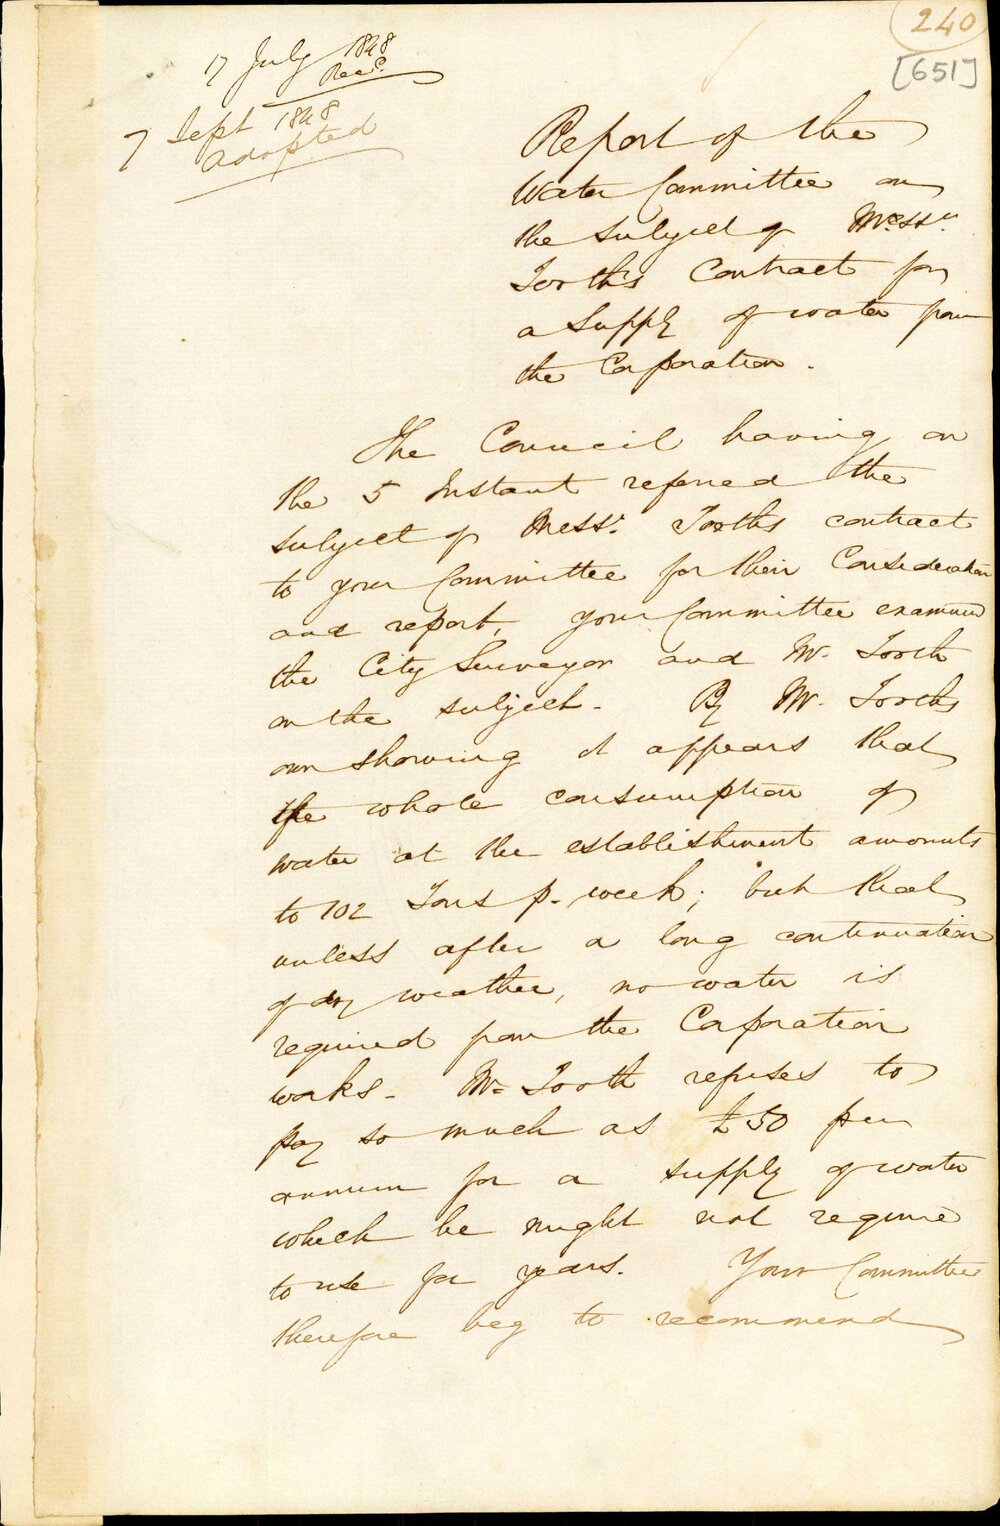 240
[651]
17 July 1848
Recd.
7 Sept 1848
adopted
Report of the
Water Committee on
the subject of Messrs.
Tooth's Contract for
a Supply of water from
the Corporation.
The Council having on
the 5 Instant referred the
subject of Messrs. Tooths contract
to your Committee for their Consideration
and report, your Committee examined
the City Surveyor and Mr. Tooth
on the subject. By Mr. Tooths
own showing it appears that
the whole consumption of
water at the establishment amounts
to 102 Tons p. week; but that
unless after a long continuation
of dry weather, no water is
required from the Corporation
works. Mr. Tooth refuses to
pay so much as £50 per
annum for a supply of water
which he might not require
to use for years. Your Committee
therefore beg to recommend